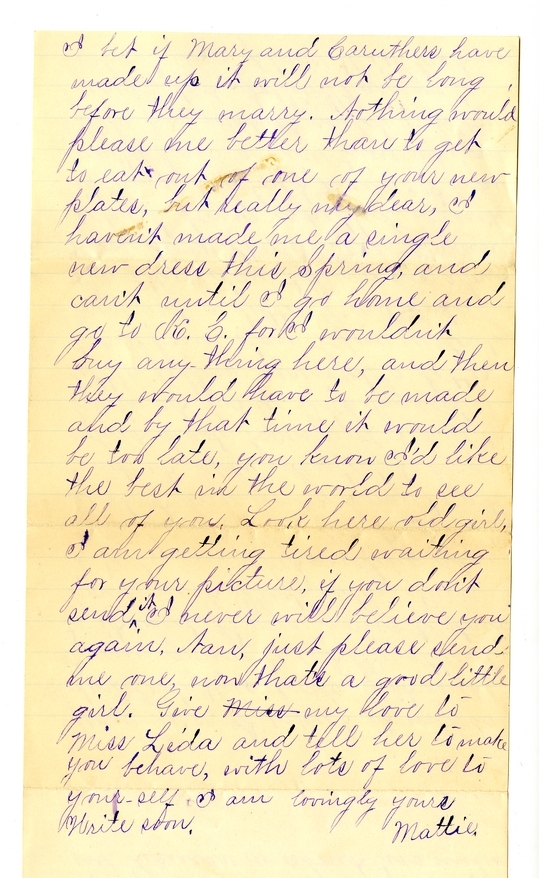 I bet if Mary and Caruthers have
made up it will not be long
before they marry. Nothing would
please me better than to get
to eat out of one of your new
plates, but really my dear, I
havent made me a single
new dress this Spring, and
can't until I go home and
go to K. C. for I wouldn't
buy any-thing here, and then
they would have to be made
and by that time it would
be too late, you know I'd like
the best in the world to see
all of you. Look here old girl,
I am getting tired waiting
for your picture, if you don't
send it I never will believe you
again, Nan, just please send
me one, now thats a good little
girl. Give Miss my love to
Miss Lida and tell her to make
you behave, with lots of love to
your-self. I am lovingly yours
Write soon. Mattie.